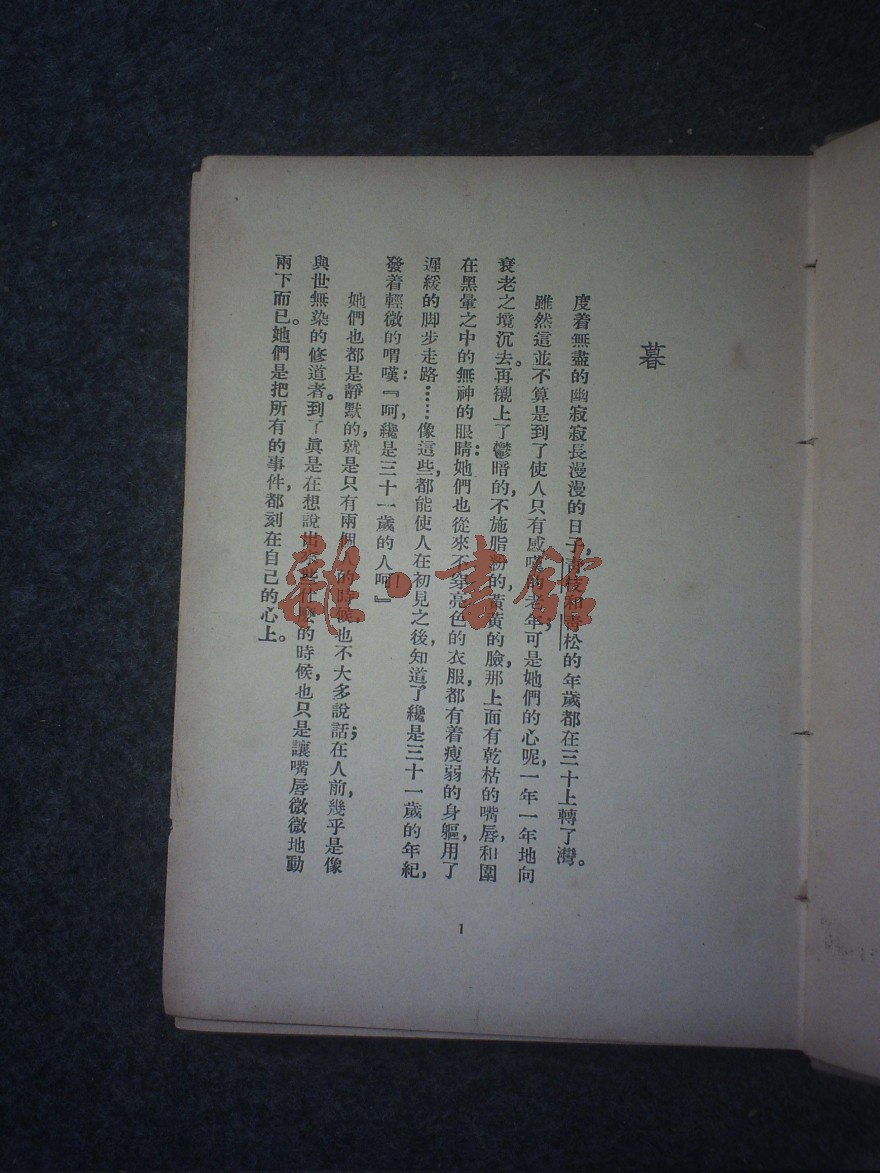 暮
度着無盡的幽寂寂長漫漫的日子,青枝和青松的年歲都在三十上轉了灣。
雖然這並不算是到了使人只有感嘆的老年;可是她們的心呢,一年一年地向
衰老之境沉去。再襯上了鬱暗的,不施脂粉的,黃黃的臉,那上面有乾枯的嘴唇和圍
在黑暈之中的無神的眼睛:她們也從來不穿亮色的衣服,都有着瘦弱的身軀,用了
遲緩的脚步走路……像這些,都能使人在初見之後知道了纔是三十一歲的年紀,
發着輕微的喟嘆:『呵,纔是三十一歲的人呵!』
她們也都是靜默的,就是只有兩個人的時候,也不大多說話;在人前,幾乎是像
與世無染的修道者。到了眞是在想說出來些什麽的時候,也只是讓嘴唇微微地動
兩下而已。她們是把所有的事件,都刻在自己的心上。
1
雜·書館